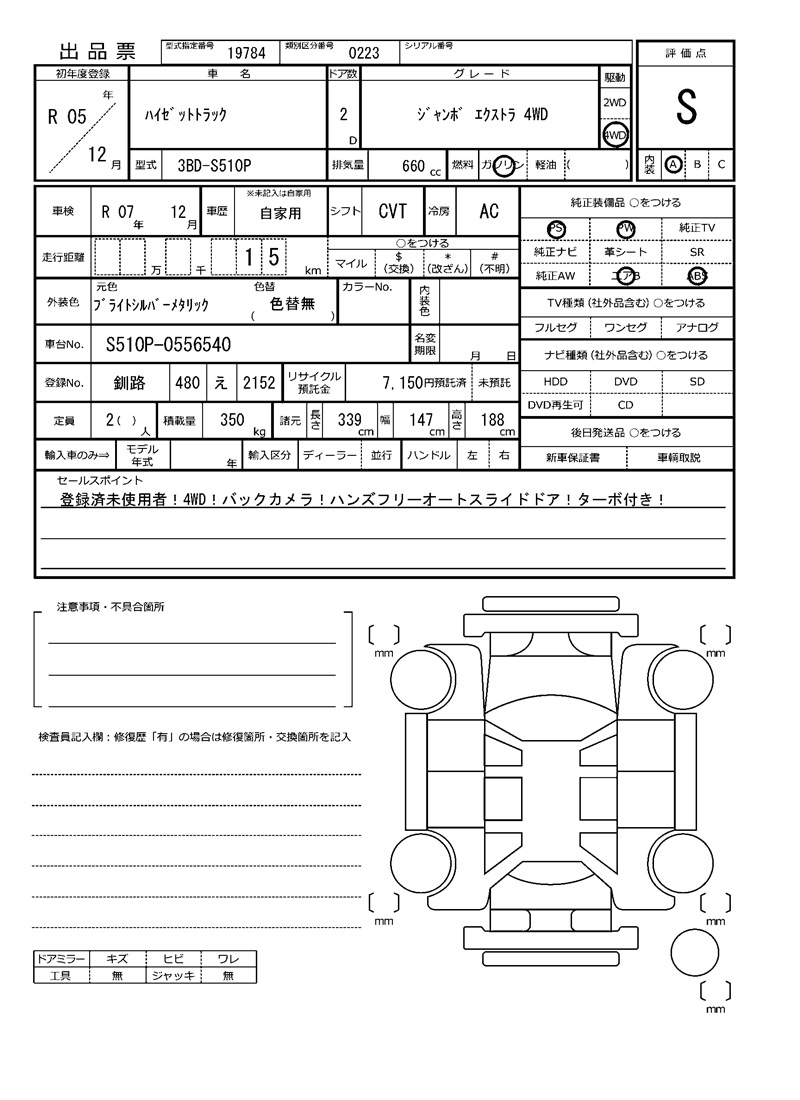 出品票 型式指定番号 19784 類別区分番号 0223 シリアル番号 評価点
初年度登録 車名 ドア数 グレード 駆動
R 05 年 12 月 ハイゼットトラック 2 D ジャンボ エクストラ 4WD 2WD 4WD S
型式 3BD-S510P 排気量 660 cc 燃料 ガソリン 軽油 ( ) 内装 A B C
車検 R 07 年 12 月 車歴 ※未記入は自家用 自家用 シフト CVT 冷房 AC 純正装備品 ○をつける
PS PW 純正TV
走行距離 万 千 1 5 km ○をつける
マイル $(交換) *(改ざん) #(不明)
純正ナビ 革シート SR
純正AW エアB ABS
外装色 元色 ブライトシルバーメタリック 色替 ( 色替無 ) カラーNo. 内装色
TV種類 (社外品含む) ○をつける
フルセグ ワンセグ アナログ
車台No. S510P-0556540 名変期限 月 日
ナビ種類 (社外品含む) ○をつける
登録No. 釧路 480 え 2152 リサイクル預託金 7,150円預託済 未預託
HDD DVD SD
DVD再生可 CD
定員 2( ) 人 積載量 350 kg 諸元 長さ 339 cm 幅 147 cm 高さ 188 cm
後日発送品 ○をつける
輸入車のみ⇒ モデル年式 年 輸入区分 ディーラー 並行 ハンドル 左 右
新車保証書 車輌取説
セールスポイント
登録済未使用者！4WD！バックカメラ！ハンズフリーオートスライドドア！ターボ付き！
注意事項・不具合箇所
mm mm
検査員記入欄：修復歴「有」の場合は修復箇所・交換箇所を記入
mm mm
ドアミラー キズ ヒビ ワレ
工具 無 ジャッキ 無
mm